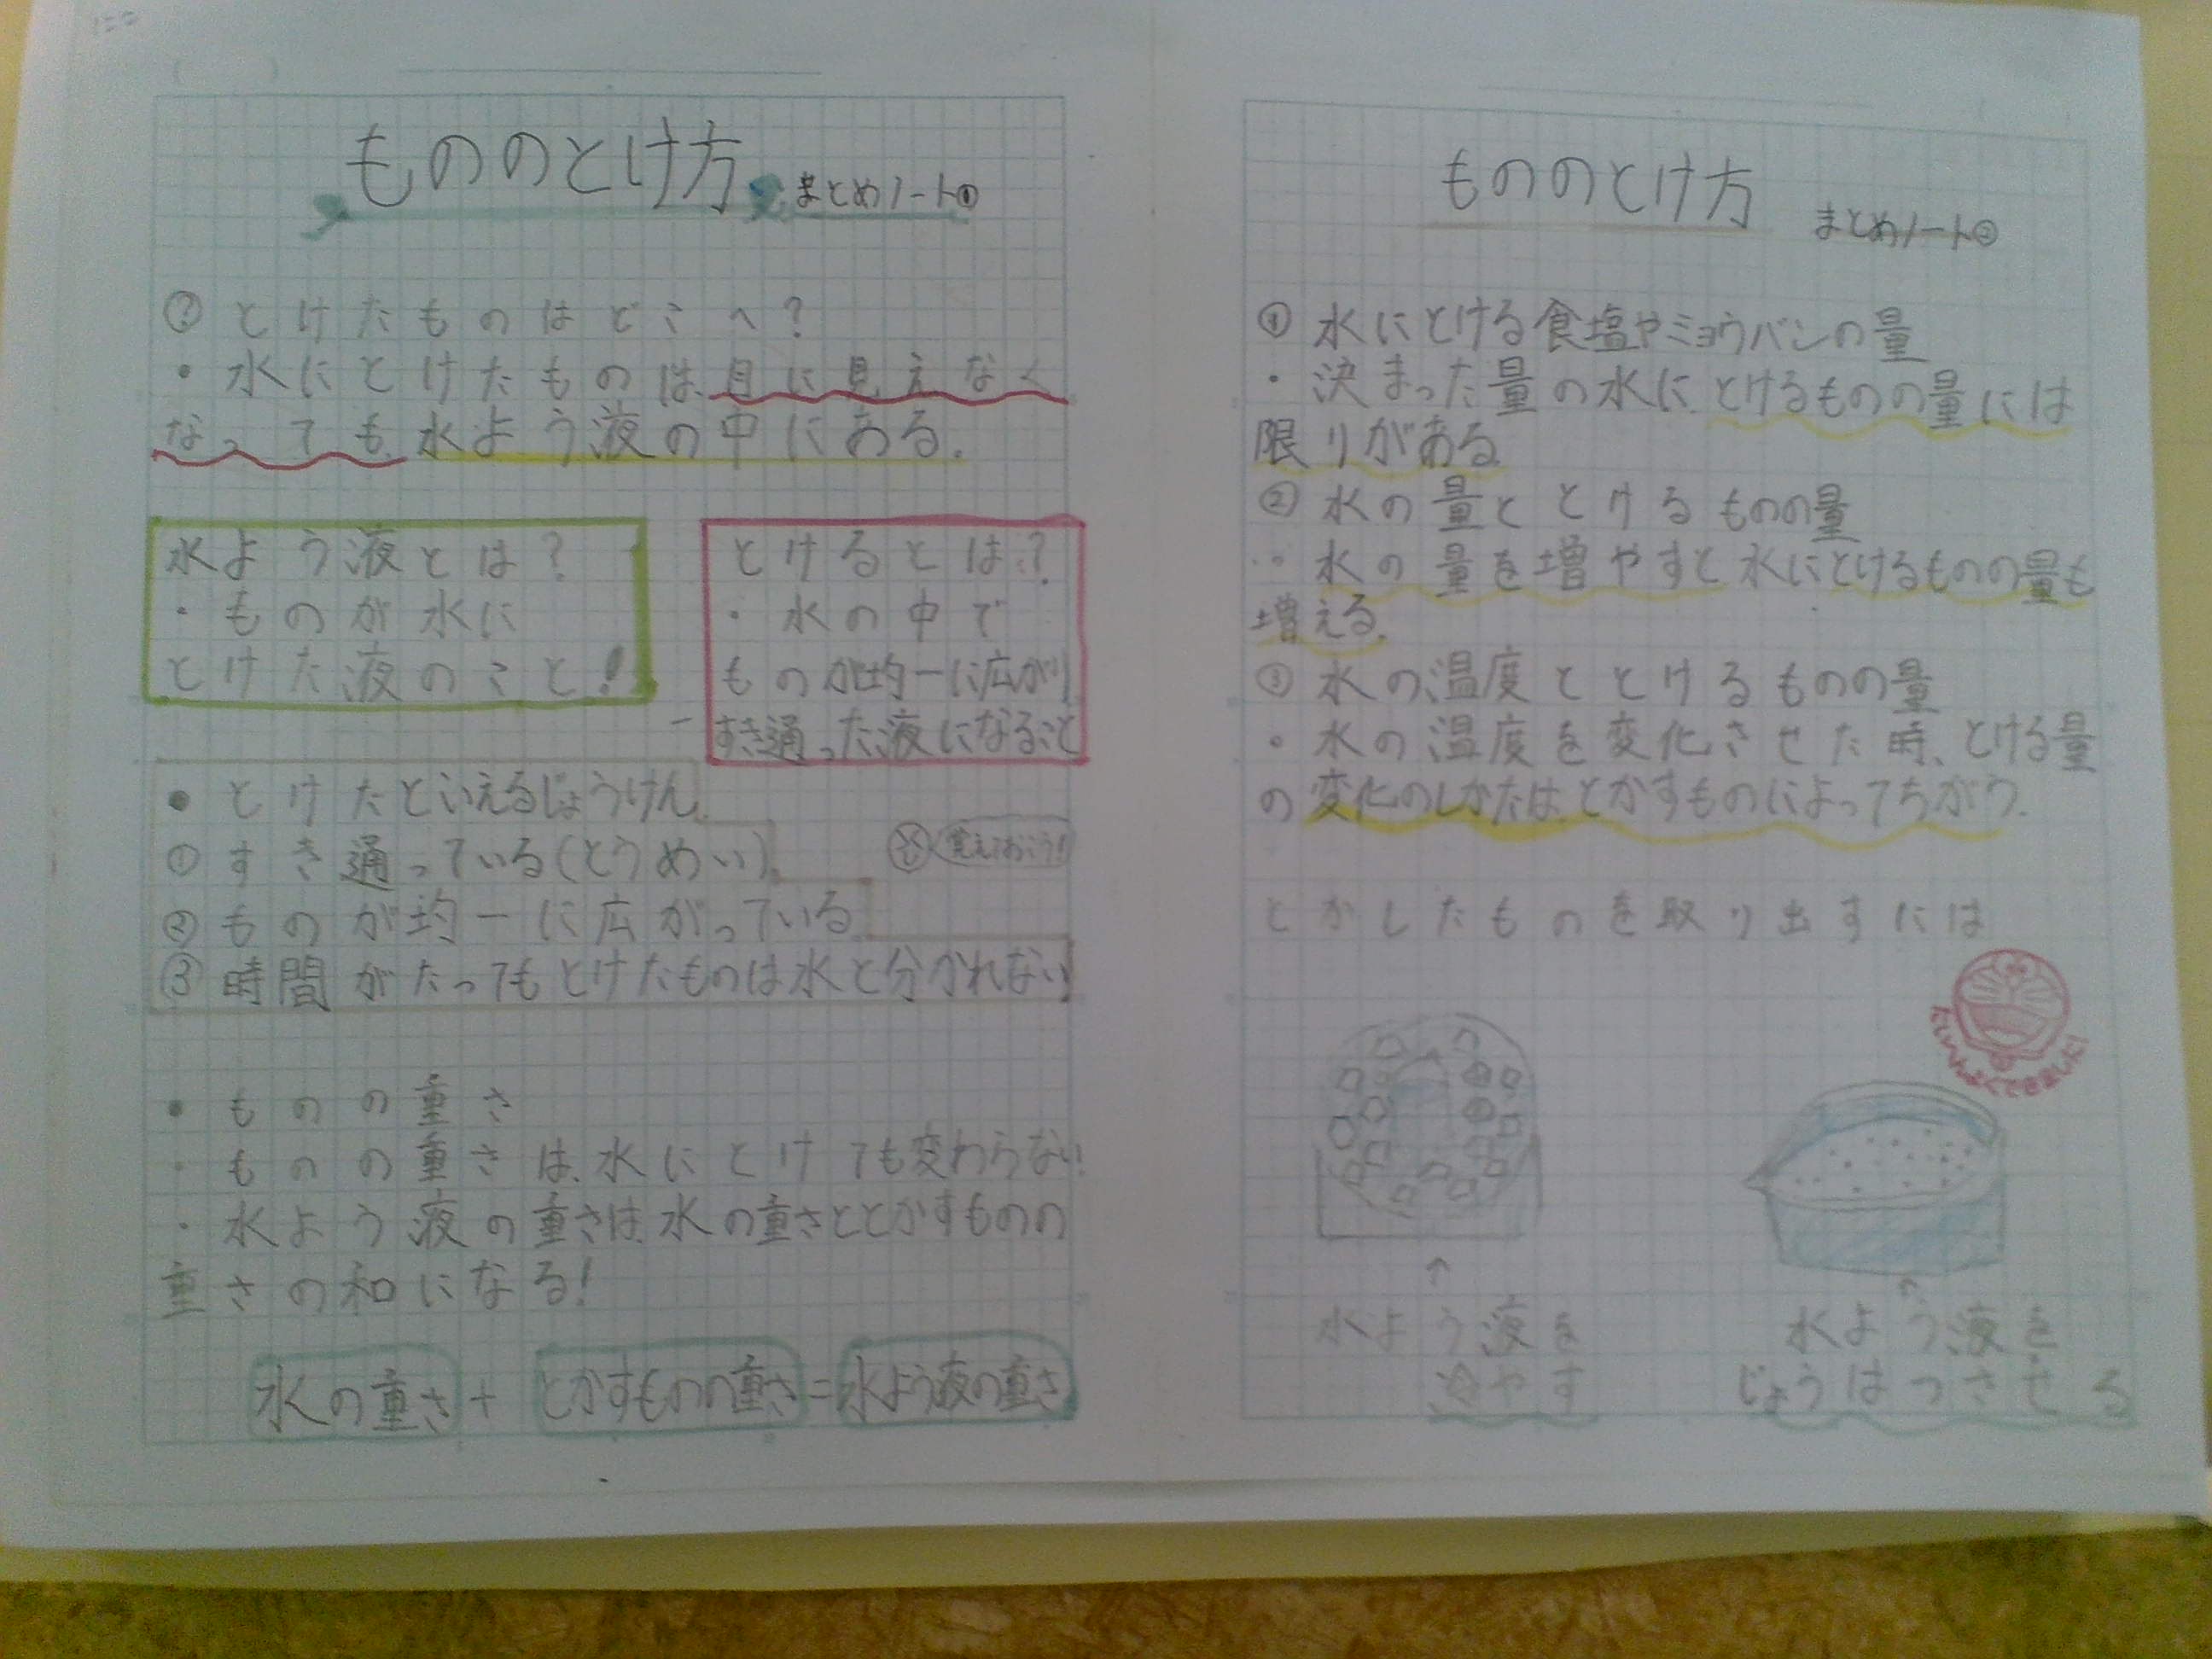 もののとけ方 まとめノート①
? とけたものはどこへ?
・水にとけたものは、目に見えなく
なっても、水よう液の中にある。
水よう液とは?
・ものが水に
とけた液のこと!
とけるとは?
・水の中で
ものが均一に広がり
すき通った液になること
・とけたといえるじょうけん
① すき通っている(とうめい)
覚えておこう!
② ものが均一に広がっている
③ 時間がたってもとけたものは水と分かれない
・ものの重さ
・ものの重さは、水にとけても変わらない!
・水よう液の重さは、水の重さととかすものの
重さの和になる!
水の重さ + とかすものの重さ = 水よう液の重さ
もののとけ方 まとめノート②
① 水にとける食塩やミョウバンの量
・決まった量の水に、とけるものの量には
限りがある。
② 水の量ととけるものの量
・水の量を増やすと水にとけるものの量も
増える。
③ 水の温度ととけるものの量
・水の温度を変化させた時、とける量
の変化のしかたは、とかすものによってちがう。
とかしたものを取り出すには
たいへんよくできました!
↑
水よう液を
冷やす
↑
水よう液を
じょうはつさせる